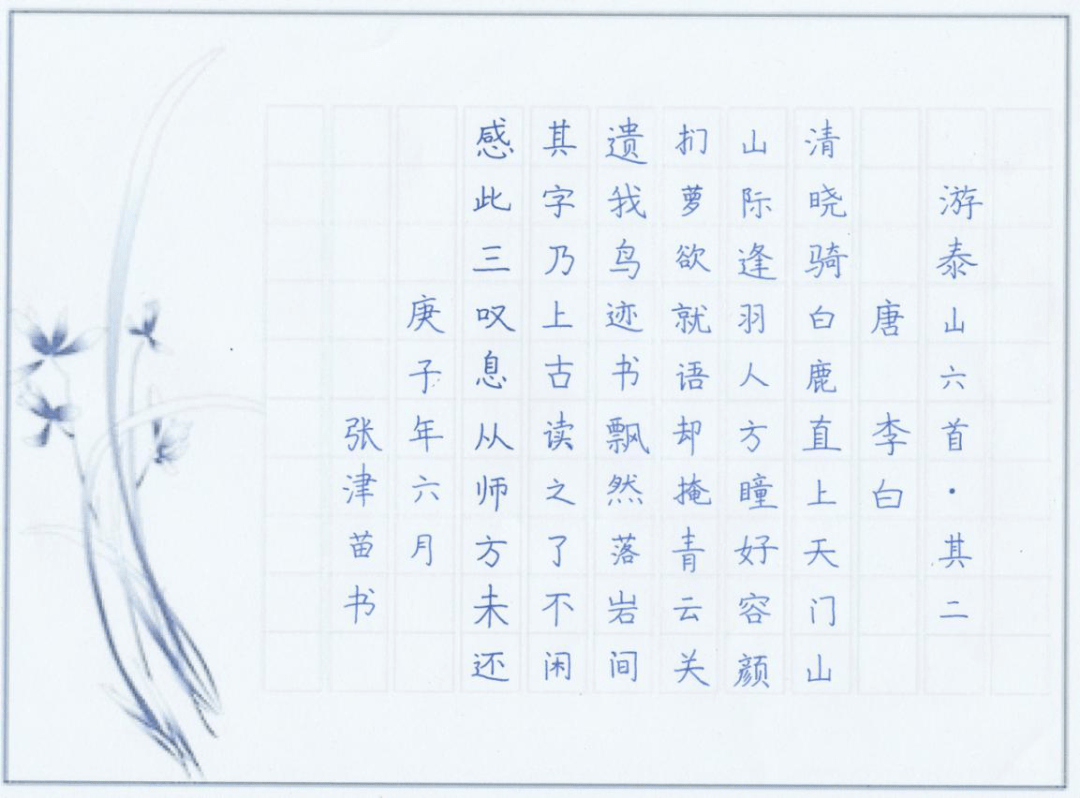 游泰山六首·其二
唐 李白
清晓骑白鹿直上天门山
山际逢羽人方瞳好容颜
扪萝欲就语却掩青云关
遗我鸟迹书飘然落岩间
其字乃上古读之了不闲
感此三叹息从师方未还
庚子年六月
张津苗书